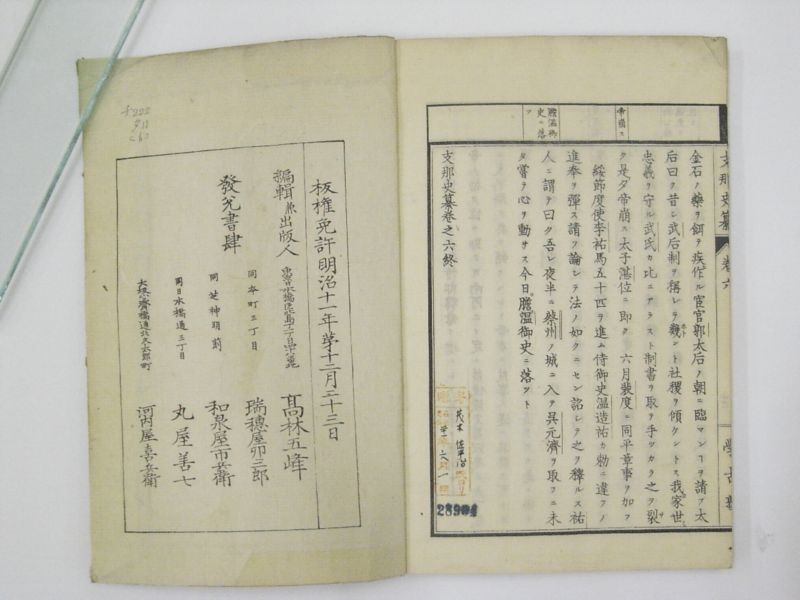 支那史纂 卷六
金石ノ藥ヲ餌ヲ疾作ル宦官郭太后ノ朝ニ臨マンヿヲ請フ太
后曰ク昔シ武后制ヲ稱シテ觀ント社稷ヲ傾クントス我家世
忠義ヲ守ル武氏カ比ニアラスト制書ヲ取リ手ツカラ之ヲ裂
ク是夕帝崩ス太子湛位ニ即ク 六月裴度ニ同平章事ヲ加フ
綏節度使李祐馬五十四ヲ進ム侍御史溫造祐カ勅ニ違フノ
進奉ヲ彈ス請フ論シテ法ノ如クニセン詔シテ之ヲ釋ルス祐
人ニ謂ヲ曰ク吾レ夜半ニ蔡州ノ城ニ入ヲ吳元濟ヲ取フニ未
タ嘗テ心ヲ動サス今日膽溫御史ニ落ツト
支那史纂卷之六終
帝崩ス
膽溫御
史ニ落
ツ
28904
板權免許明治十一年第十二月二十三日
編輯兼出版人
高林五峰
發兌書肆
同本町三丁目
瑞穗屋卯三郎
同芝神明前
和泉屋市兵衛
同日本橋通三丁目
丸屋善七
大坂心齋橋通北久太郎町
河內屋喜兵衛